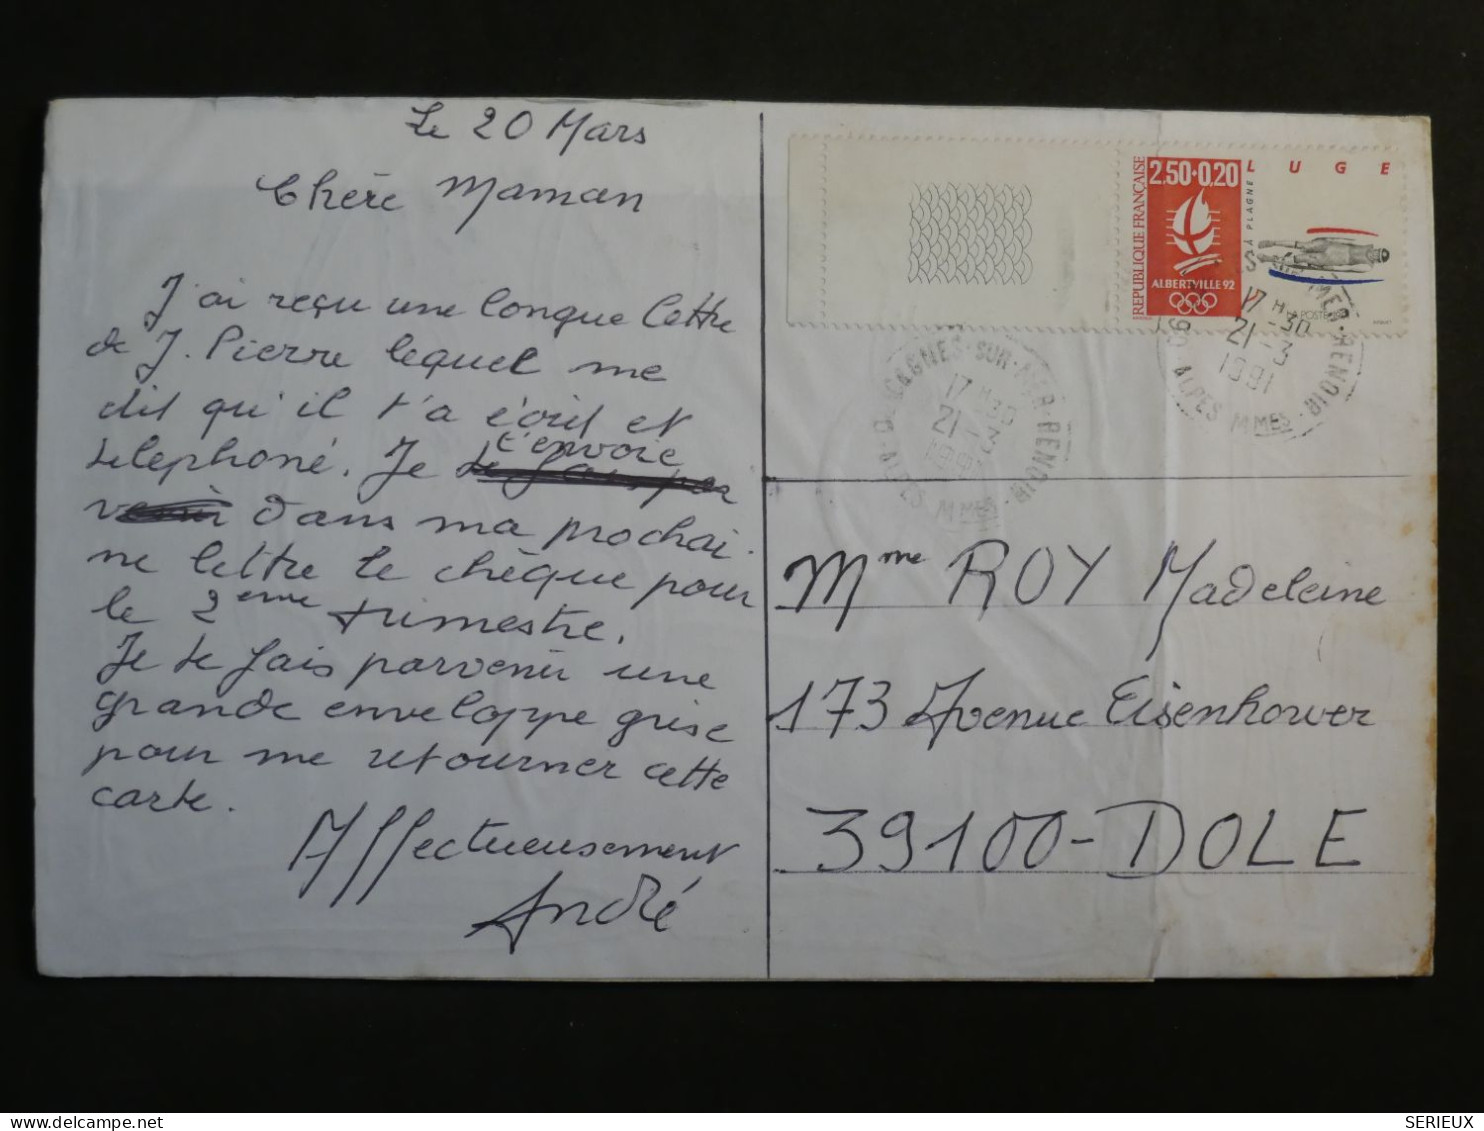 Le 20 Mars
Chère Maman
J'ai reçu une longue lettre
de J. Pierre lequel me
dit qu'il t'a écrit et
telephoné. Je t'envoie
dans ma prochai-
ne lettre le chèque pour
le 2ème trimestre.
Je te fais parvenir une
grande enveloppe grise
pour me retourner cette
carte.
Affectueusement
André
RÉPUBLIQUE FRANÇAISE
2,50+0,20
ALBERTVILLE 92
LUGE
LA PLAGNE
LA POSTE
CAGNES-SUR-MER-RENOIR
17 H30
21-3
1991
ALPES MMES
MER-RENOIR
17 H 30
21-3
1991
06 ALPES MMES
Mme ROY Madeleine
173 Avenue Eisenhower
39100-DOLE
SERIEUX